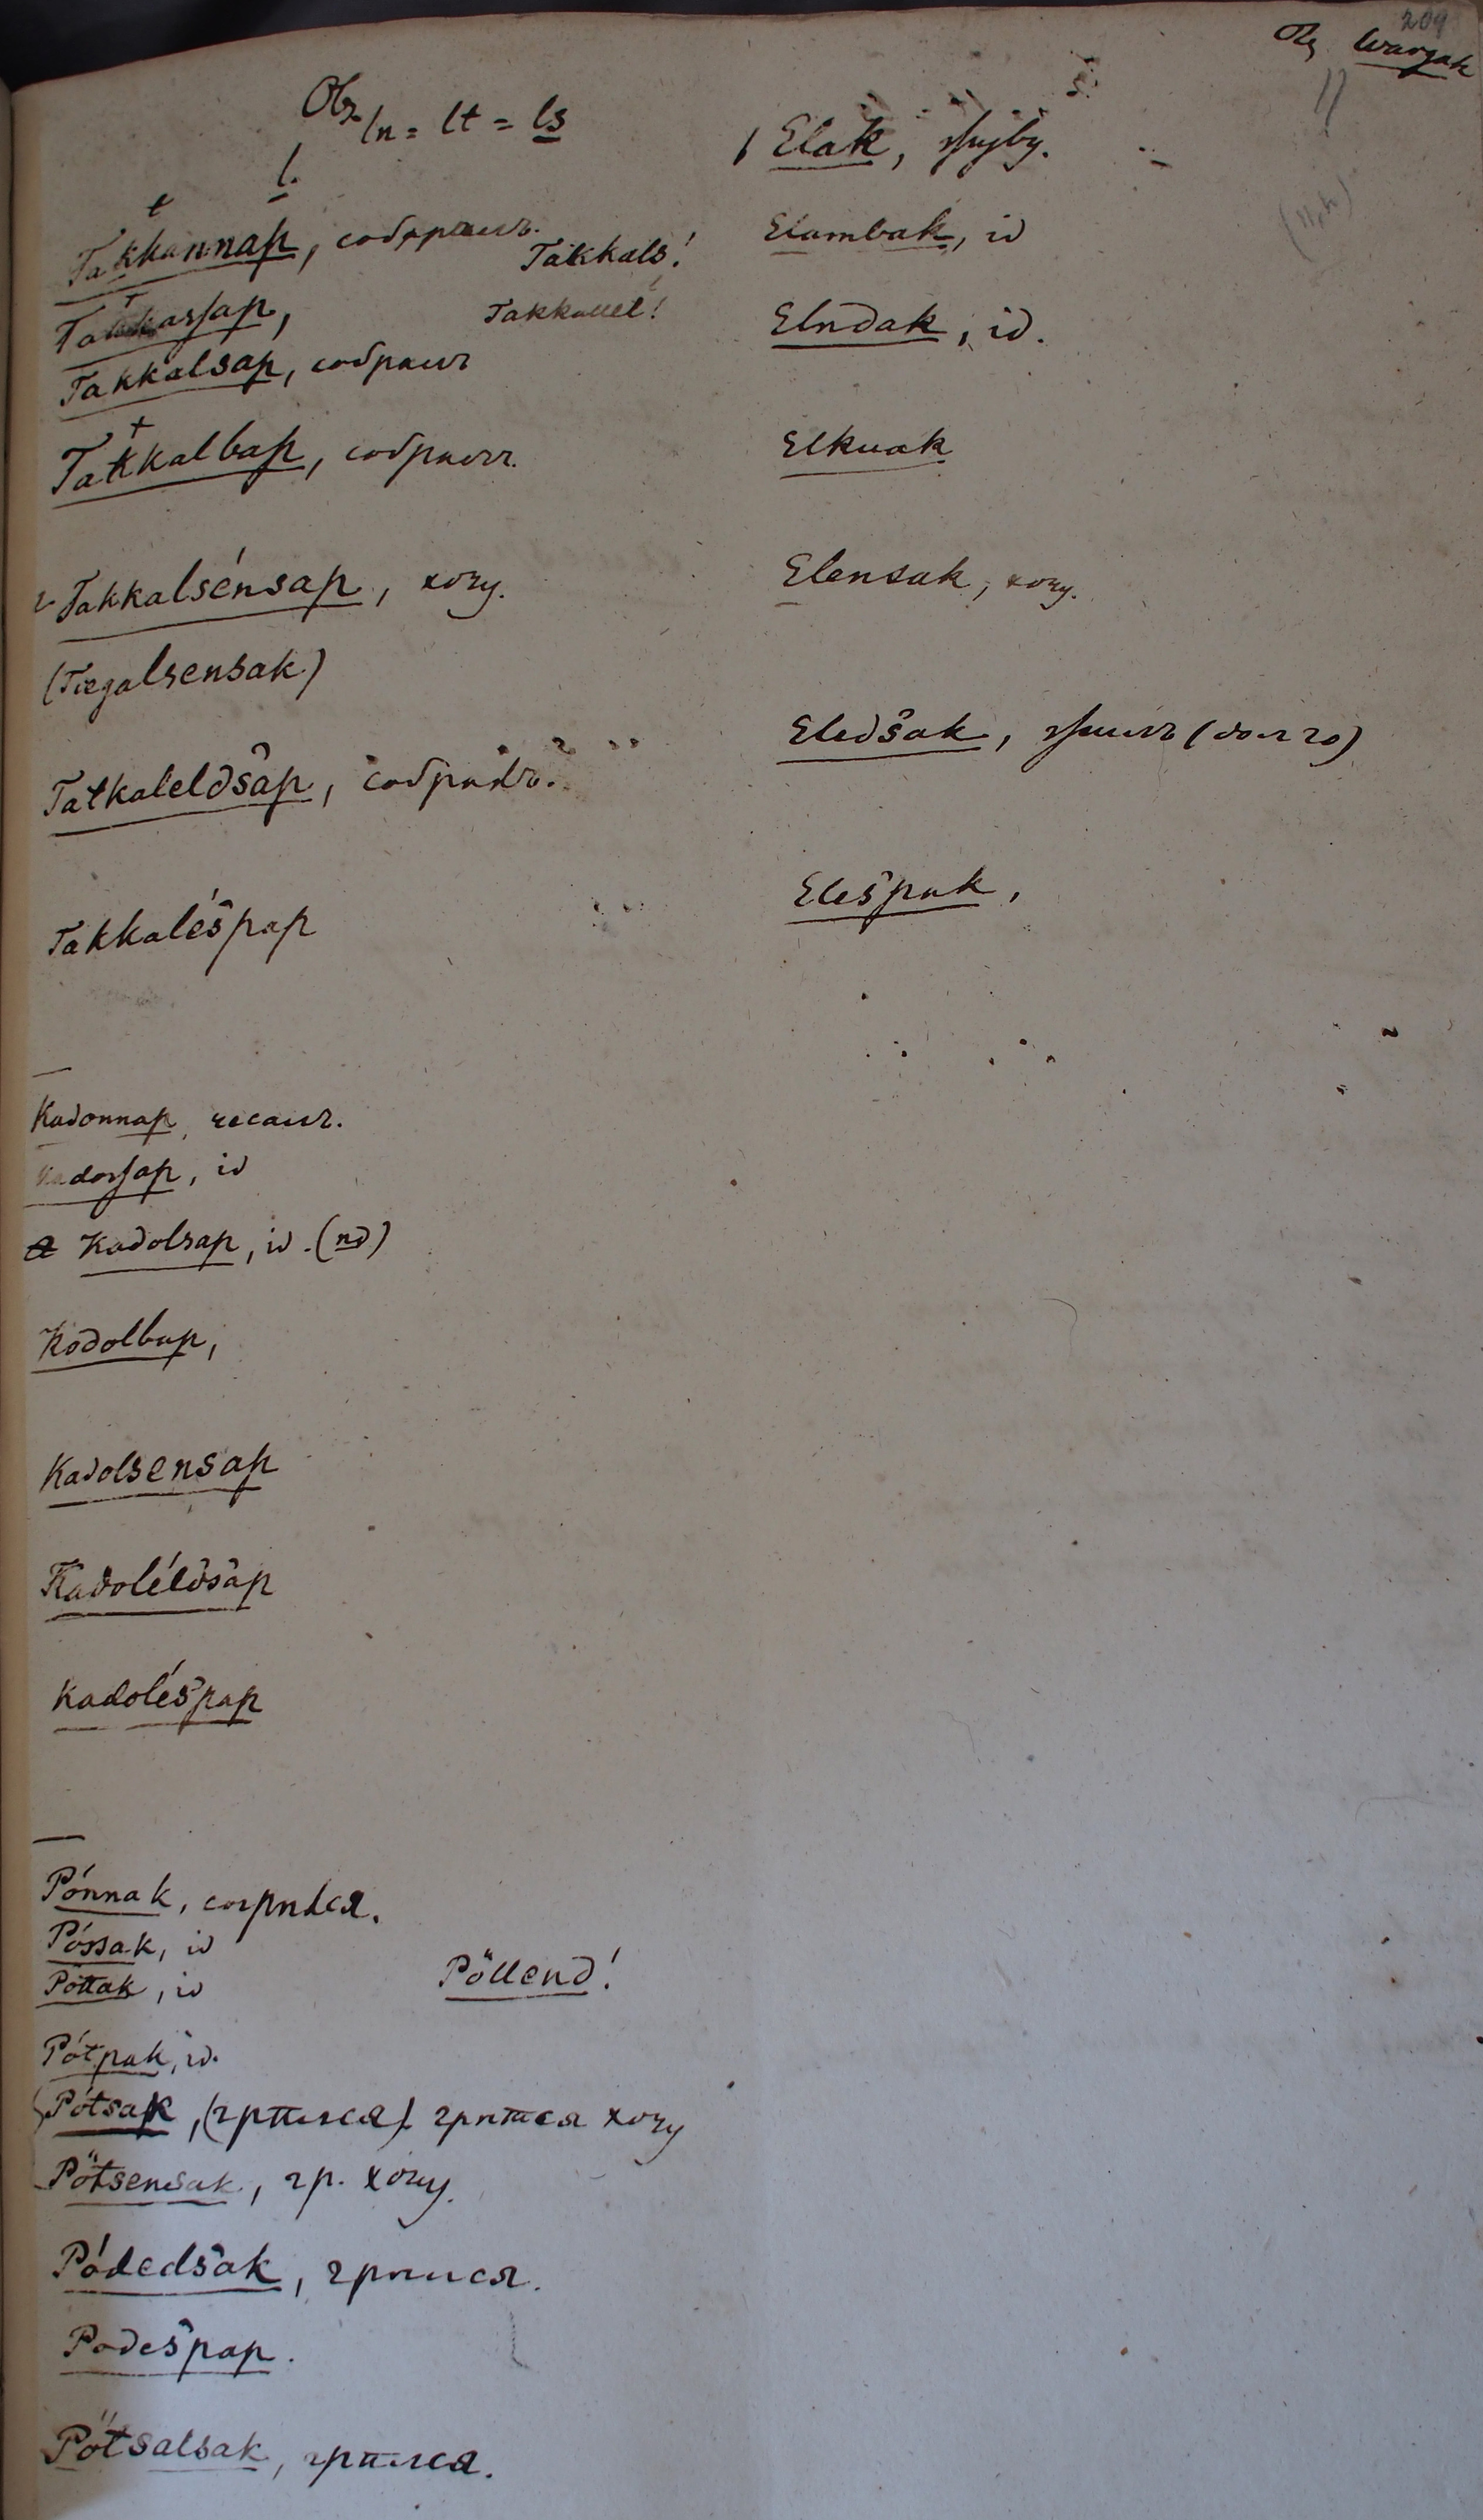 209
Obs wargak
Obs. ln = lt = ls
l.
t
Takkannap, собрраить.
Takkals!
Takkassap,
Takkallel!
Takkalsap, собраить
Takkalbap, собраить.
Takkalsénsap, хочу.
(Tiegalsensak)
Tatkaleldšap, собрать.
Takkaléšpap
Kadonnap, чесаить.
Kadossap, id
Kadolsap, id. (nd)
Kodolbap,
Kadolsensap
Kadoléldšap
Kadoléšpap
Pónnak, согрѣлся.
Póssak, id
Pöttak, id
Pöllend!
Pótpak, id.
Pótsak, (грѣлся) грѣтся хочу
Pötsensak, гр. хочу.
Pódedšak, грѣлся.
Podešpap.
Pötsalsak, грѣлся.
Elak, живу.
Elambak, id
Elndak, id.
Elkuak
Elensak, хочу.
Eledšak, жить (долго)
Elešpak,